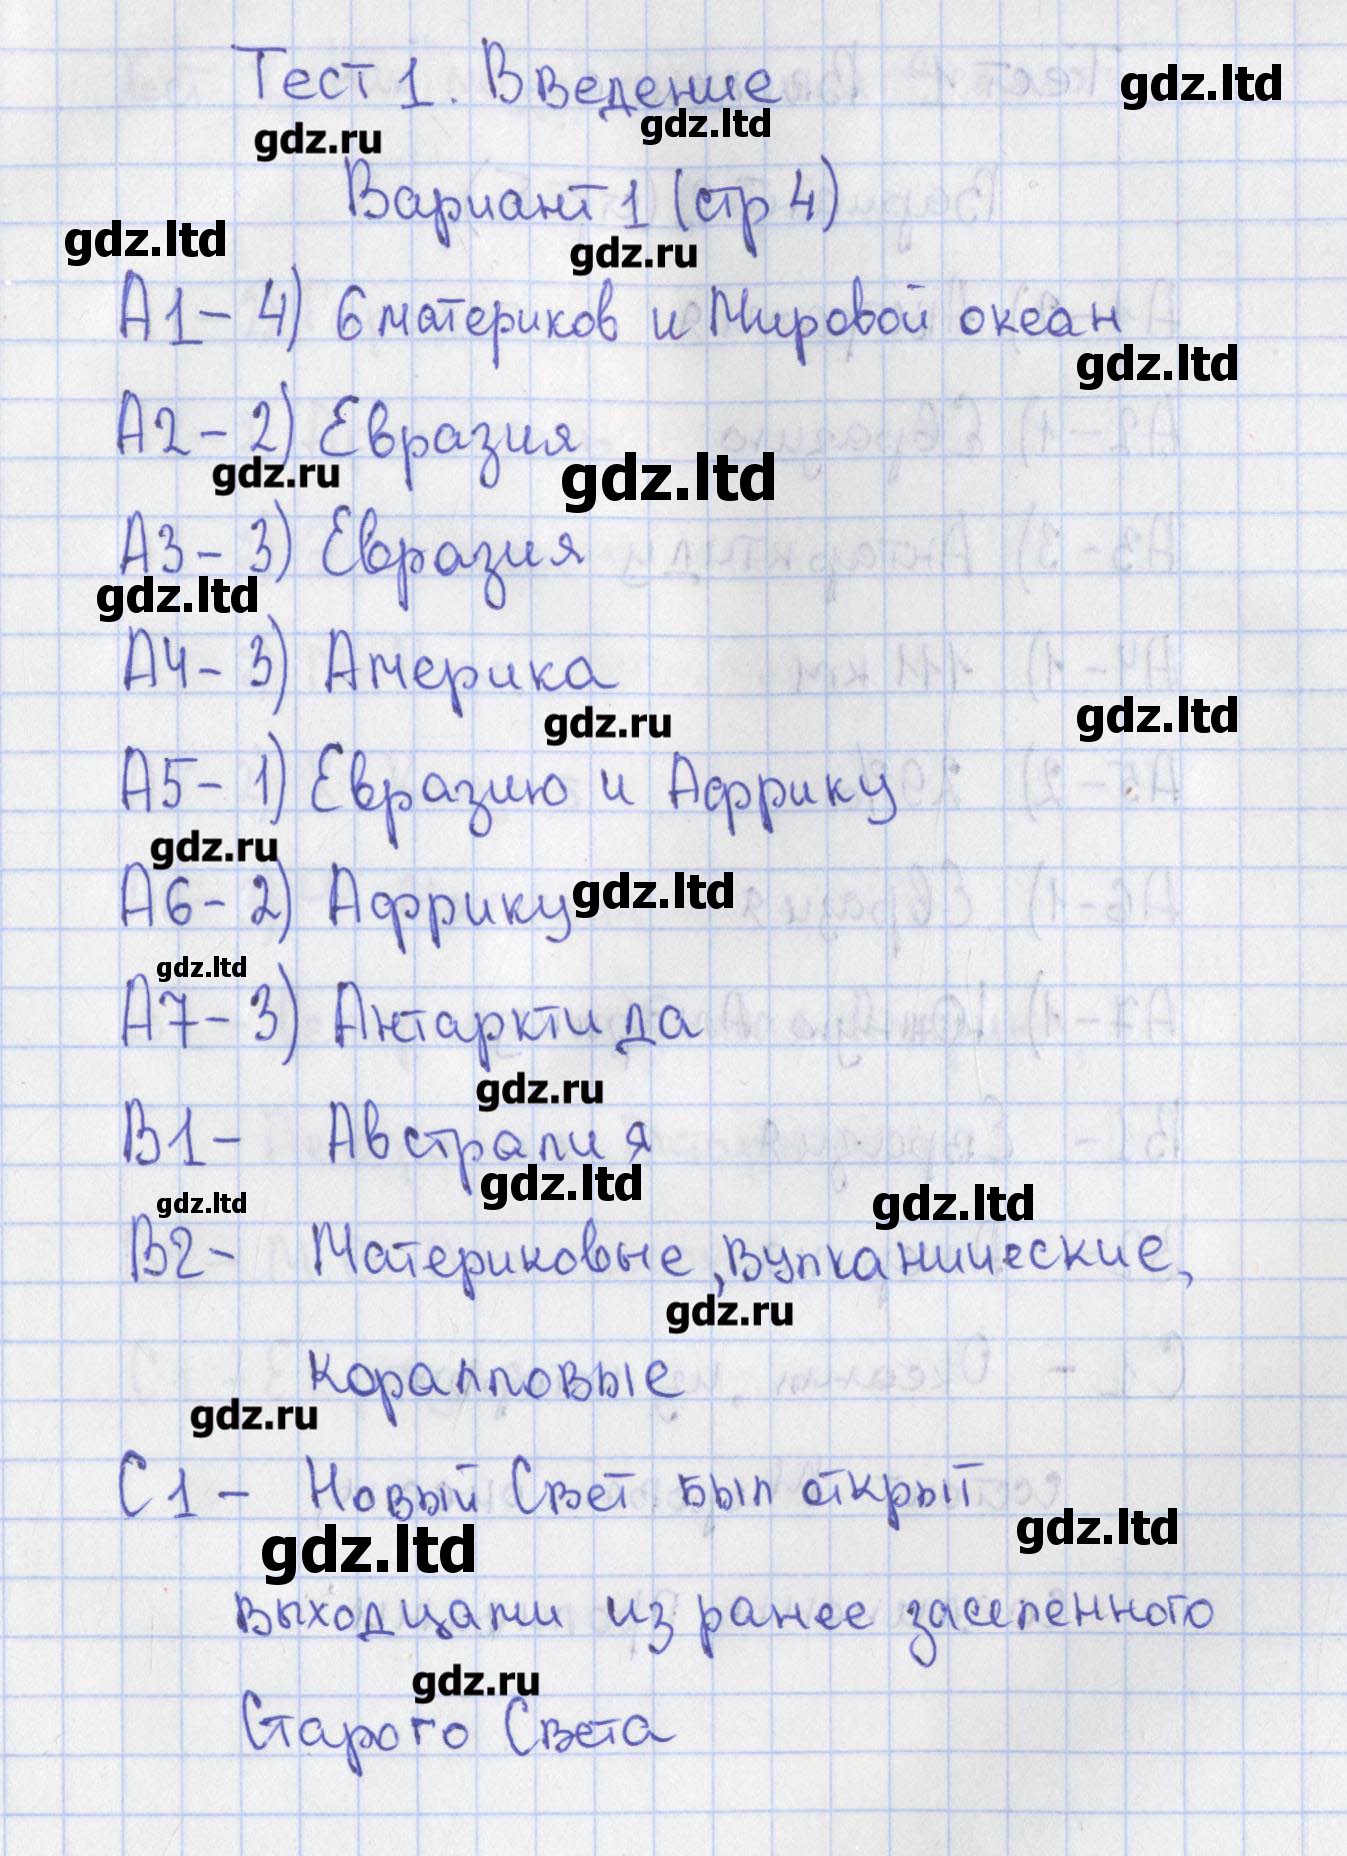 Тест 1. Введение
gdz.ltd
gdz.ru
gdz.ltd
Вариант 1 (стр 4)
gdz.ltd
gdz.ru
А1 – 4) 6 материков и Мировой океан
gdz.ltd
А2 – 2) Евразия
gdz.ru
gdz.ltd
А3 – 3) Евразия
gdz.ltd
А4 – 3) Америка
gdz.ru
gdz.ltd
А5 – 1) Евразию и Африку
gdz.ru
А6 – 2) Африку
gdz.ltd
gdz.ltd
А7 – 3) Антарктида
gdz.ru
В1 – Австралия
gdz.ltd
gdz.ltd
gdz.ltd
В2 – Материковые, вулканические,
gdz.ru
коралловые
gdz.ru
С1 – Новый Свет был открыт
gdz.ltd
gdz.ltd
выходцами из ранее заселенного
gdz.ru
Старого Света